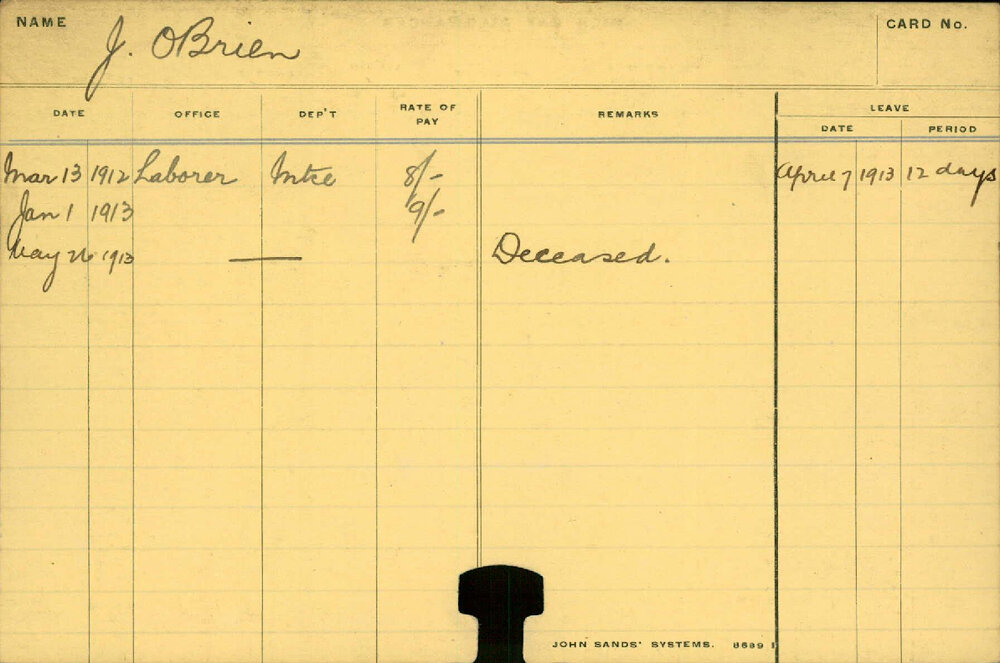 NAME J. OBrien CARD No.
DATE OFFICE DEP'T RATE OF PAY REMARKS LEAVE
DATE PERIOD
Mar 13 1912 Laborer Mtce 8/- April 7 1913 12 days
Jan 1 1913 9/-
May 26 1913 — Deceased.
JOHN SANDS' SYSTEMS. 8689